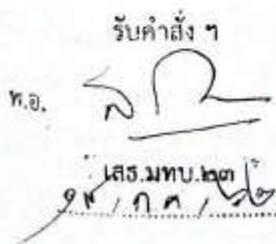 รับคำสั่ง ฯ
พ.อ.
เสธ.มทบ.๒๓
/ ก.ค. /